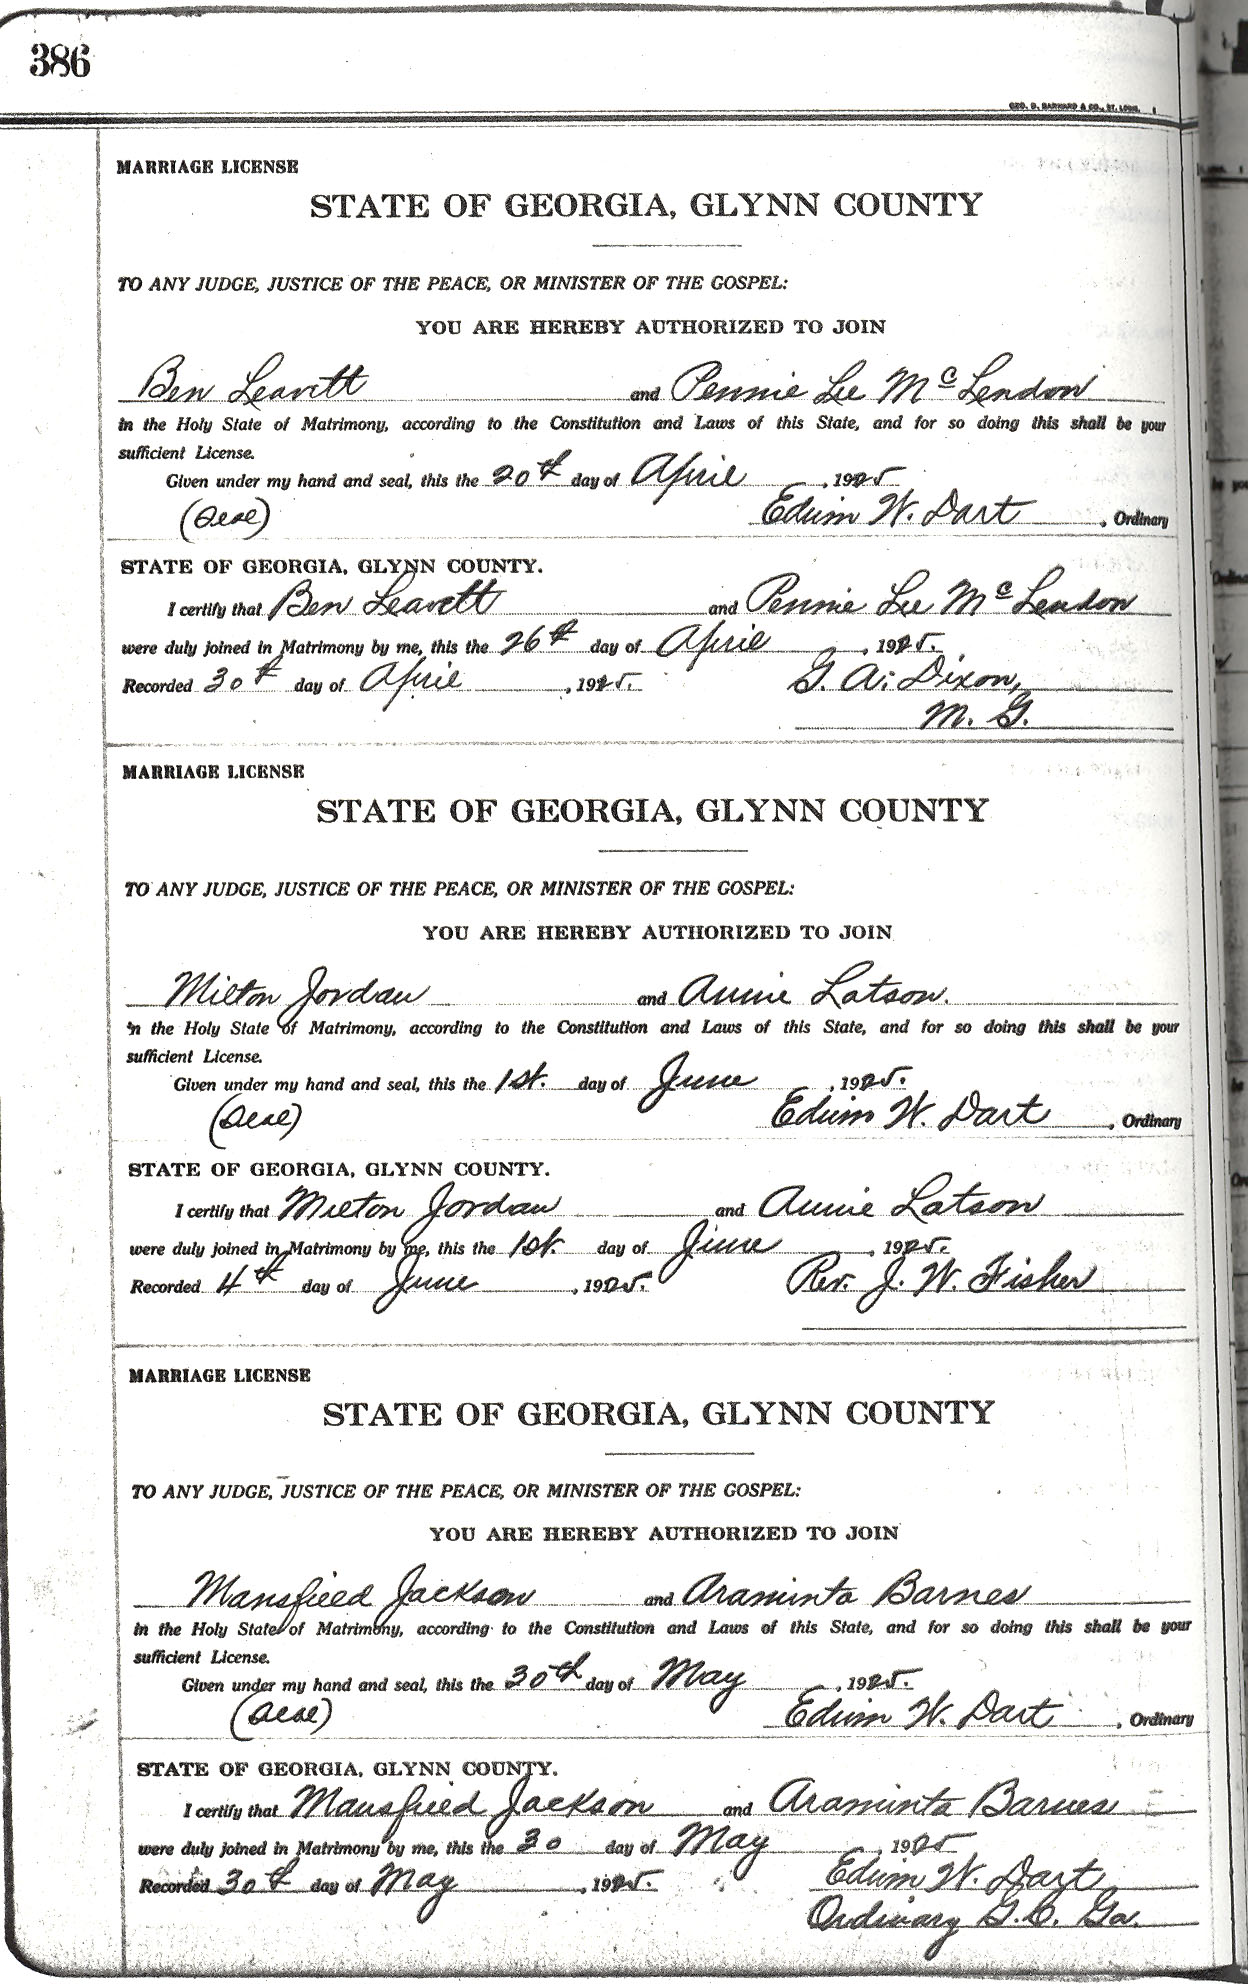 386
GEO. D. BARNARD & CO., ST. LOUIS.
MARRIAGE LICENSE
STATE OF GEORGIA, GLYNN COUNTY
TO ANY JUDGE, JUSTICE OF THE PEACE, OR MINISTER OF THE GOSPEL:
YOU ARE HEREBY AUTHORIZED TO JOIN
Ben Leavett and Pennie Lee McLendon
in the Holy State of Matrimony, according to the Constitution and Laws of this State, and for so doing this shall be your
sufficient License.
Given under my hand and seal, this the 20th day of April, 1925
(Seal) Edwin W. Dart, Ordinary
STATE OF GEORGIA, GLYNN COUNTY.
I certify that Ben Leavett and Pennie Lee McLendon
were duly joined in Matrimony by me, this the 26th day of April, 1925.
Recorded 30th day of April, 1925. G. A. Dixon,
M. G.
MARRIAGE LICENSE
STATE OF GEORGIA, GLYNN COUNTY
TO ANY JUDGE, JUSTICE OF THE PEACE, OR MINISTER OF THE GOSPEL:
YOU ARE HEREBY AUTHORIZED TO JOIN
Milton Jordan and Annie Latson.
in the Holy State of Matrimony, according to the Constitution and Laws of this State, and for so doing this shall be your
sufficient License.
Given under my hand and seal, this the 1st. day of June, 1925.
(Seal) Edwin W. Dart, Ordinary
STATE OF GEORGIA, GLYNN COUNTY.
I certify that Milton Jordan and Annie Latson
were duly joined in Matrimony by me, this the 1st. day of June, 1925.
Recorded 4th day of June, 1925. Rev. J. W. Fisher
MARRIAGE LICENSE
STATE OF GEORGIA, GLYNN COUNTY
TO ANY JUDGE, JUSTICE OF THE PEACE, OR MINISTER OF THE GOSPEL:
YOU ARE HEREBY AUTHORIZED TO JOIN
Mansfield Jackson and Araminta Barnes
in the Holy State of Matrimony, according to the Constitution and Laws of this State, and for so doing this shall be your
sufficient License.
Given under my hand and seal, this the 30th day of May, 1925.
(Seal) Edwin W. Dart, Ordinary
STATE OF GEORGIA, GLYNN COUNTY.
I certify that Mansfield Jackson and Araminta Barnes
were duly joined in Matrimony by me, this the 30 day of May, 1925
Recorded 30th day of May, 1925. Edwin W. Dart
Ordinary G.C. Ga.